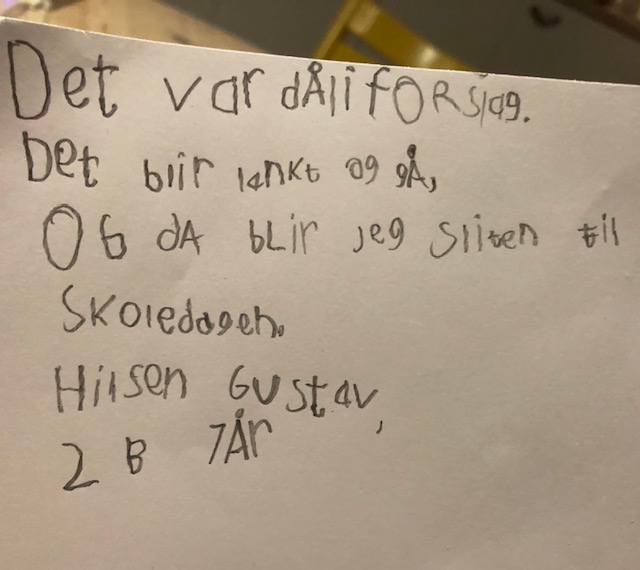 Det var dÅli fORslag.
Det blir lankt og gÅ,
OG dA bLir jeg sliten til
Skoledagen.
Hilsen Gustav,
2 B 7År